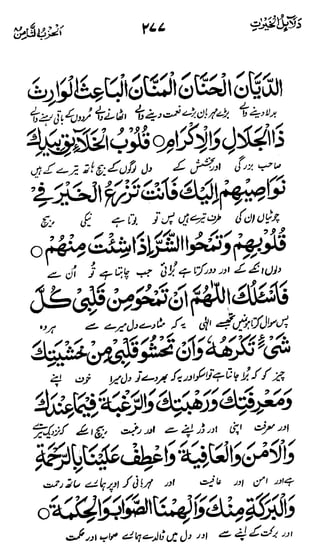 دلائل الخیرات ۲۷۷ الحزب الثامن
الدَّيَّانَ الْحَنَّانَ الْمَنَّانَ الْبَاعِثَ الْوَارِثَ
بدلا دینے والے بڑے مہربان بڑے نعمت دینے والے اٹھانے والے مُردوں کے باقی رہنے والے
ذَا الْجَلَالِ وَالْإِكْرَامِ ○ قُلُوْبُ الْخَلَآئِقِ بِيَدِكَ
صاحب بزرگی اور بخشش کے دل لوگوں کے بیچ ہاتھ تیرے کے ہیں
نَوَاصِيْهِمْ اِلَيْكَ فَاَنْتَ تَزْرَعُ الْخَيْرَ فِيْ
چوٹیاں ان کی طرف تیرے ہیں پس تو بوتا ہے نیکی بیچ
قُلُوْبِهِمْ وَتَمْحُوا الشَّرَّ اِذَا شِئْتَ مِنْهُمْ ○
دلوں انکے کے اور دور کرتا ہے بُرائی جب چاہتا ہے تو اُن سے
فَاَسْئَلُكَ اللّٰهُمَّ اَنْ تَمْحُوَ مِنْ قَلْبِيْ كُلَّ
پس سوال کرتا ہوں تجھسے الٰہی یہ کہ مٹادے دل میرے سے ہر وہ
شَيْءٍ تَكْرَهُهُ وَاَنْ تَحْشُوَ قَلْبِيْ مِنْ خَشْيَتِكَ
چیز کہ بُرا جانتا ہے تو اسکو اور یہ کہ بھر دے تو دل میرا خوف اپنے
وَمَعْرِفَتِكَ وَرَهْبَتِكَ وَالرَّغْبَةَ فِيْمَا عِنْدَكَ
اور معرفت اپنی اور ڈر اپنے سے اور رغبت بیچ اسکے کہ نزدیک تیرے
وَالْاَمْنَ وَالْعَافِيَةَ وَاعْطِفْ عَلَيْنَا بِالرَّحْمَةِ
ہے اور امن اور عافیت اور مہربانی کر اوپر ہمارے ساتھ رحمت
وَالْبَرَكَةِ مِنْكَ وَاَلْهِمْنَا الصَّوَابَ وَالْحِكْمَةَ ○
اور برکت کے اپنے سے اور دل میں ڈالدے ہمارے صواب اور حکمت